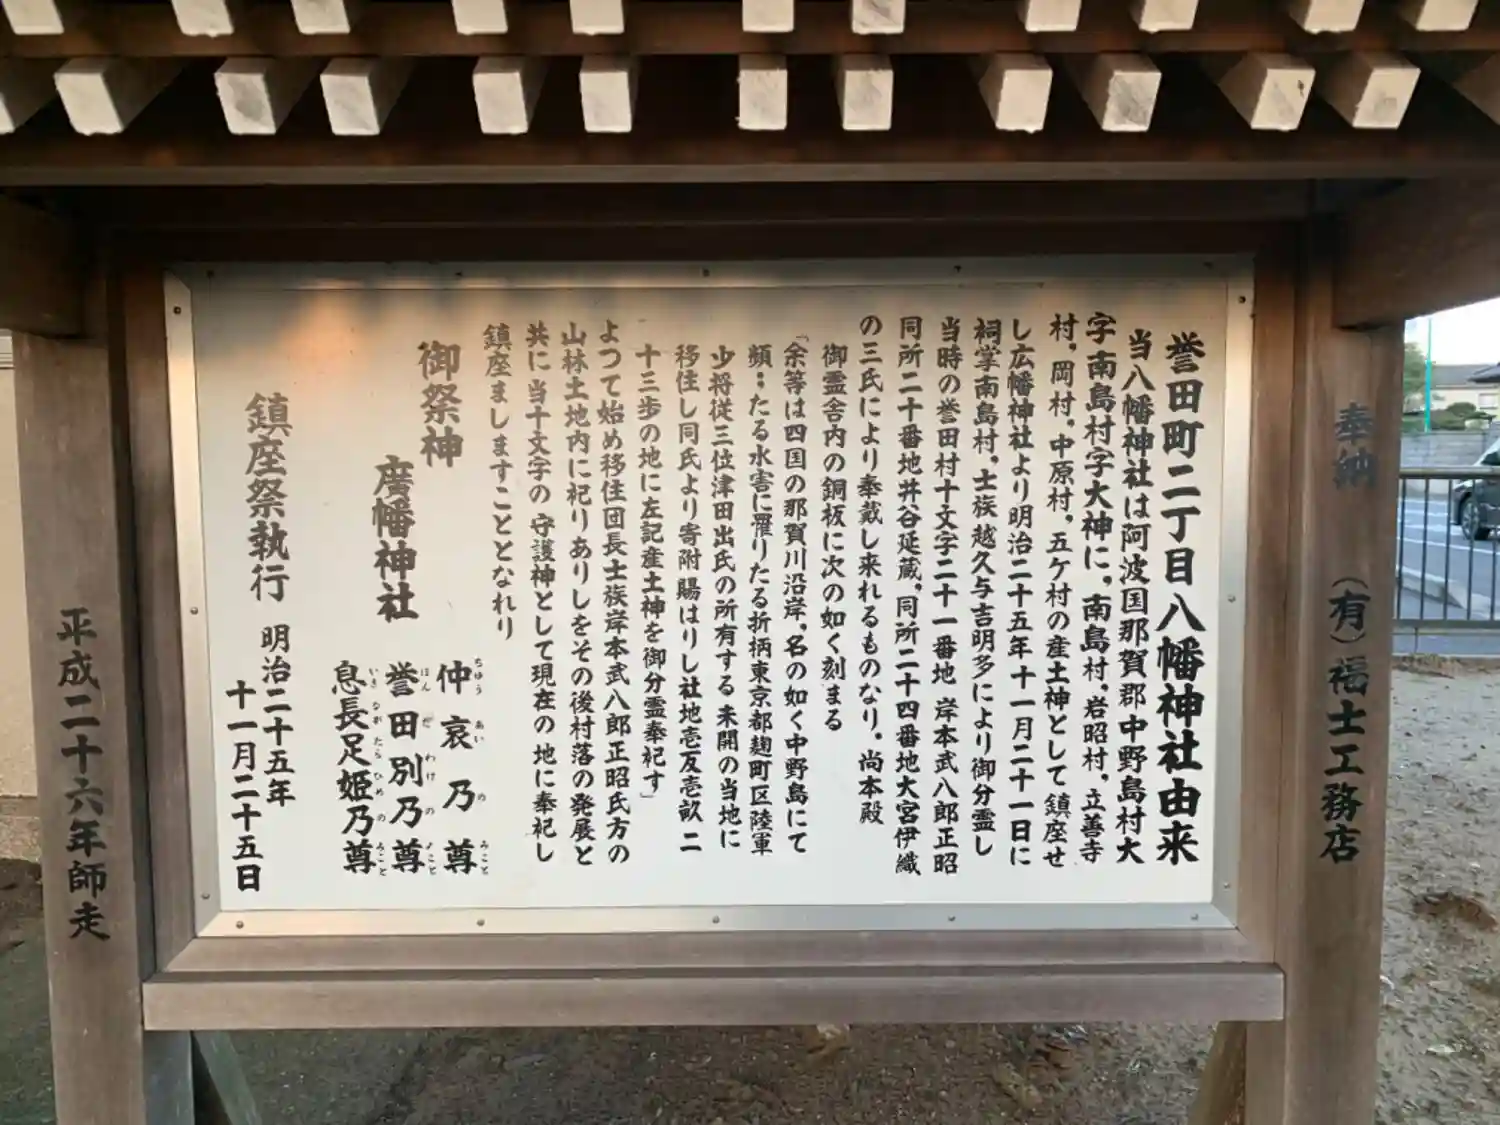 誉田町二丁目八幡神社由来
当八幡神社は阿波国那賀郡中野島村大
字南島村字大神に、南島村、岩昭村、立善寺
村、岡村、中原村、五ケ村の産土神として鎮座せ
し広幡神社より明治二十五年十一月二十一日に
祠掌南島村、士族越久与吉明多により御分霊し
当時の誉田村十文字二十一番地 岸本武八郎正昭
同所二十番地井谷延蔵、同所二十四番地大宮伊織
の三氏により奉戴し来れるものなり、尚本殿
御霊舎内の銅板に次の如く刻まる
「余等は四国の那賀川沿岸、名の如く中野島にて
頻々たる水害に罹りたる折柄東京都麹町区陸軍
少将従三位津田出氏の所有する未開の当地に
移住し同氏より寄附賜はりし社地壱反壱畝二
十三歩の地に左記産土神を御分霊奉祀す」
よつて始め移住団長士族岸本武八郎正昭氏方の
山林土地内に祀りありしをその後村落の発展と
共に当十文字の守護神として現在の地に奉祀し
鎮座ましますこととなれり
御祭神
仲哀乃尊
ちゆうあいのみこと
廣幡神社
誉田別乃尊
ほんだわけのみこと
息長足姫乃尊
いきながたらひめのみこと
鎮座祭執行 明治二十五年
十一月二十五日
奉納 (有)福士工務店
平成二十六年師走